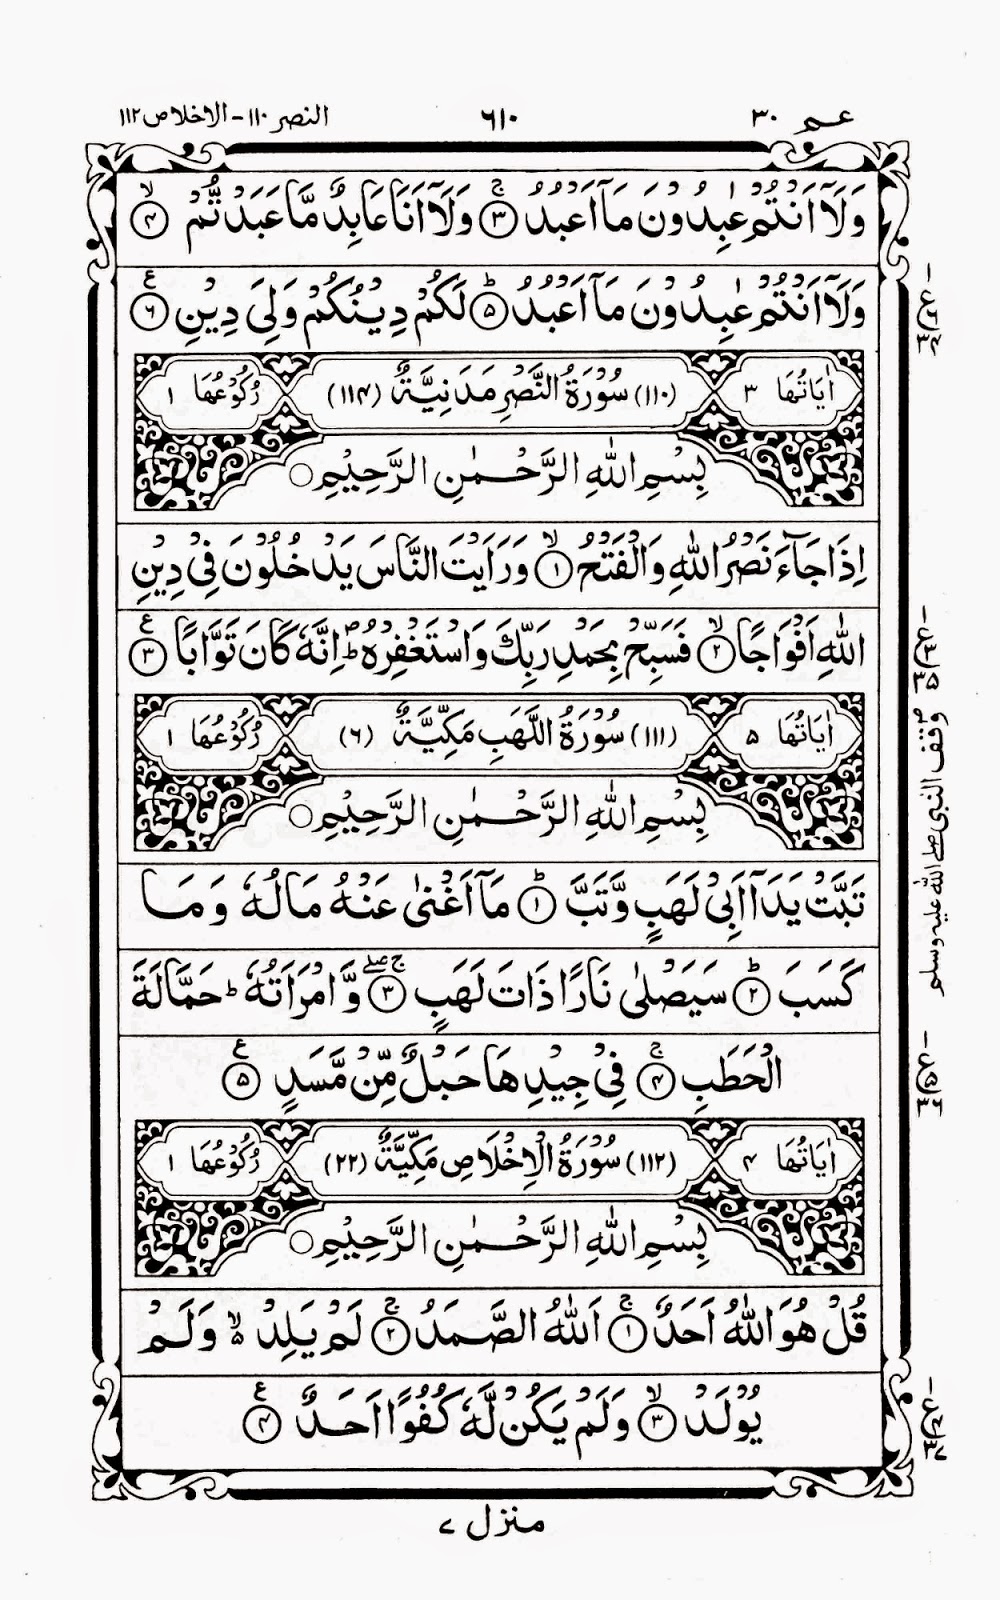 عـم ٣٠
٦١٠
النصر ١١٠ - الاخلاص ١١٢
وَلَاۤ اَنْتُمْ عٰبِدُوْنَ مَاۤ اَعْبُدُ ۚ﴿۳﴾ وَلَاۤ اَنَا عَابِدٌ مَّا عَبَدْتُّمْ ۙ﴿۴﴾
وَلَاۤ اَنْتُمْ عٰبِدُوْنَ مَاۤ اَعْبُدُ ؕ﴿۵﴾ لَكُمْ دِيْنُكُمْ وَلِيَ دِيْنِ ﴿۶﴾ ع
اٰيَاتُهَا ٣
(١١٠) سُوْرَةُ النَّصْرِ مَدَنِيَّةٌ (١١٤)
رُكُوْعُهَا ١
بِسْمِ اللّٰهِ الرَّحْمٰنِ الرَّحِيْمِ ○
اِذَا جَآءَ نَصْرُ اللّٰهِ وَالْفَتْحُ ۙ﴿۱﴾ وَرَاَيْتَ النَّاسَ يَدْخُلُوْنَ فِيْ دِيْنِ
اللّٰهِ اَفْوَاجًا ۙ﴿۲﴾ فَسَبِّحْ بِحَمْدِ رَبِّكَ وَاسْتَغْفِرْهُ ؕ اِنَّهٗ كَانَ تَوَّابًا ﴿۳﴾ ع
اٰيَاتُهَا ٥
(١١١) سُوْرَةُ اللَّهَبِ مَكِّيَّةٌ (٦)
رُكُوْعُهَا ١
بِسْمِ اللّٰهِ الرَّحْمٰنِ الرَّحِيْمِ ○
تَبَّتْ يَدَاۤ اَبِيْ لَهَبٍ وَّتَبَّ ؕ﴿۱﴾ مَاۤ اَغْنٰى عَنْهُ مَالُهٗ وَمَا
كَسَبَ ؕ﴿۲﴾ سَيَصْلٰى نَارًا ذَاتَ لَهَبٍ ۚۖ﴿۳﴾ وَّامْرَاَتُهٗ ؕ حَمَّالَةَ
الْحَطَبِ ۚ﴿۴﴾ فِيْ جِيْدِهَا حَبْلٌ مِّنْ مَّسَدٍ ﴿۵﴾ ع
اٰيَاتُهَا ٤
(١١٢) سُوْرَةُ الْاِخْلَاصِ مَكِّيَّةٌ (٢٢)
رُكُوْعُهَا ١
بِسْمِ اللّٰهِ الرَّحْمٰنِ الرَّحِيْمِ ○
قُلْ هُوَ اللّٰهُ اَحَدٌ ۚ﴿۱﴾ اَللّٰهُ الصَّمَدُ ۚ﴿۲﴾ لَمْ يَلِدْ ۙ۬ وَلَمْ
يُوْلَدْ ۙ﴿۳﴾ وَلَمْ يَكُنْ لَّهٗ كُفُوًا اَحَدٌ ﴿۴﴾ ع
وقف النبى صلى الله عليه وسلم
منزل ۷